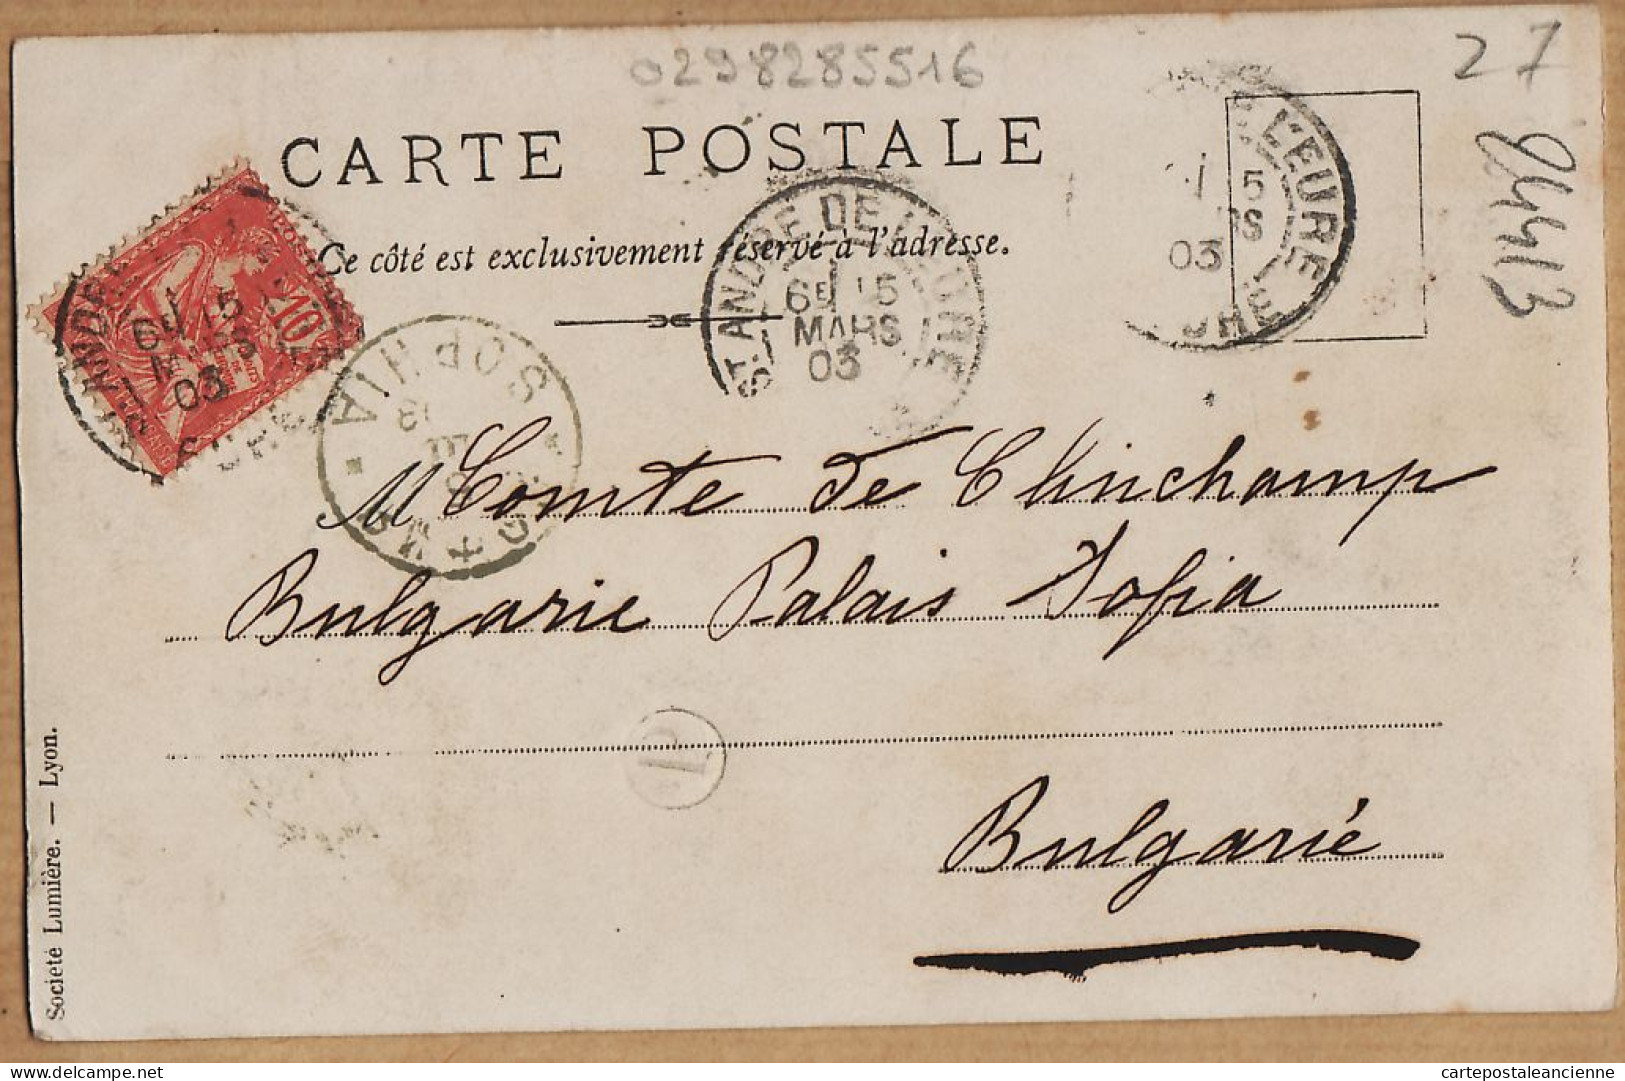 0298285516
27
CARTE POSTALE
Ce côté est exclusivement réservé à l'adresse.
10
POSTES
ST. ANDRE DE L'EURE
6E 15
MARS
03
L'EURE
5
03
EURE
SOPHIA
M Comte de Clinchamp
Bulgarie Palais Sofia
Bulgarie
Société Lumière. — Lyon.
delcampe.net
cartepostaleancienne